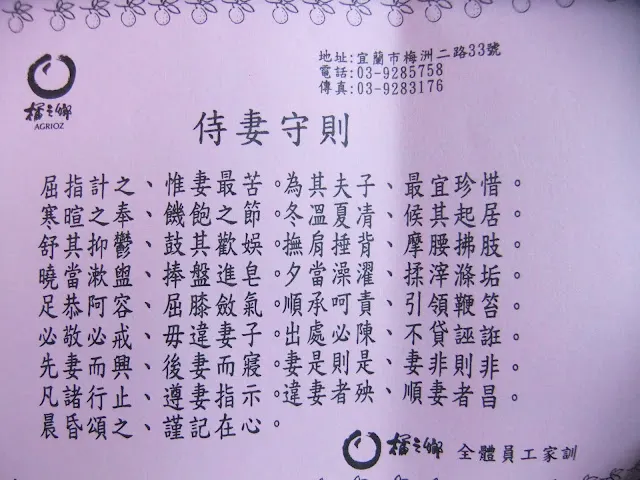 地址:宜蘭市梅洲二路33號
電話:03-9285758
傳真:03-9283176
橘之鄉
AGRIOZ
侍妻守則
屈指計之、惟妻最苦。為其夫子、最宜珍惜。
寒暄之奉、饑飽之節。冬溫夏凊、候其起居。
舒其抑鬱、鼓其歡娛。撫肩捶背、摩腰拂肢。
曉當漱盥、捧盤進皂。夕當澡濯、揉滓滌垢。
足恭阿容、屈膝斂氣。順承呵責、引領鞭笞。
必敬必戒、毋違妻子。出處必陳、不貸誣誑。
先妻而興、後妻而寢。妻是則是、妻非則非。
凡諸行止、遵妻指示。違妻者殃、順妻者昌。
晨昏頌之、謹記在心。
橘之鄉 全體員工家訓